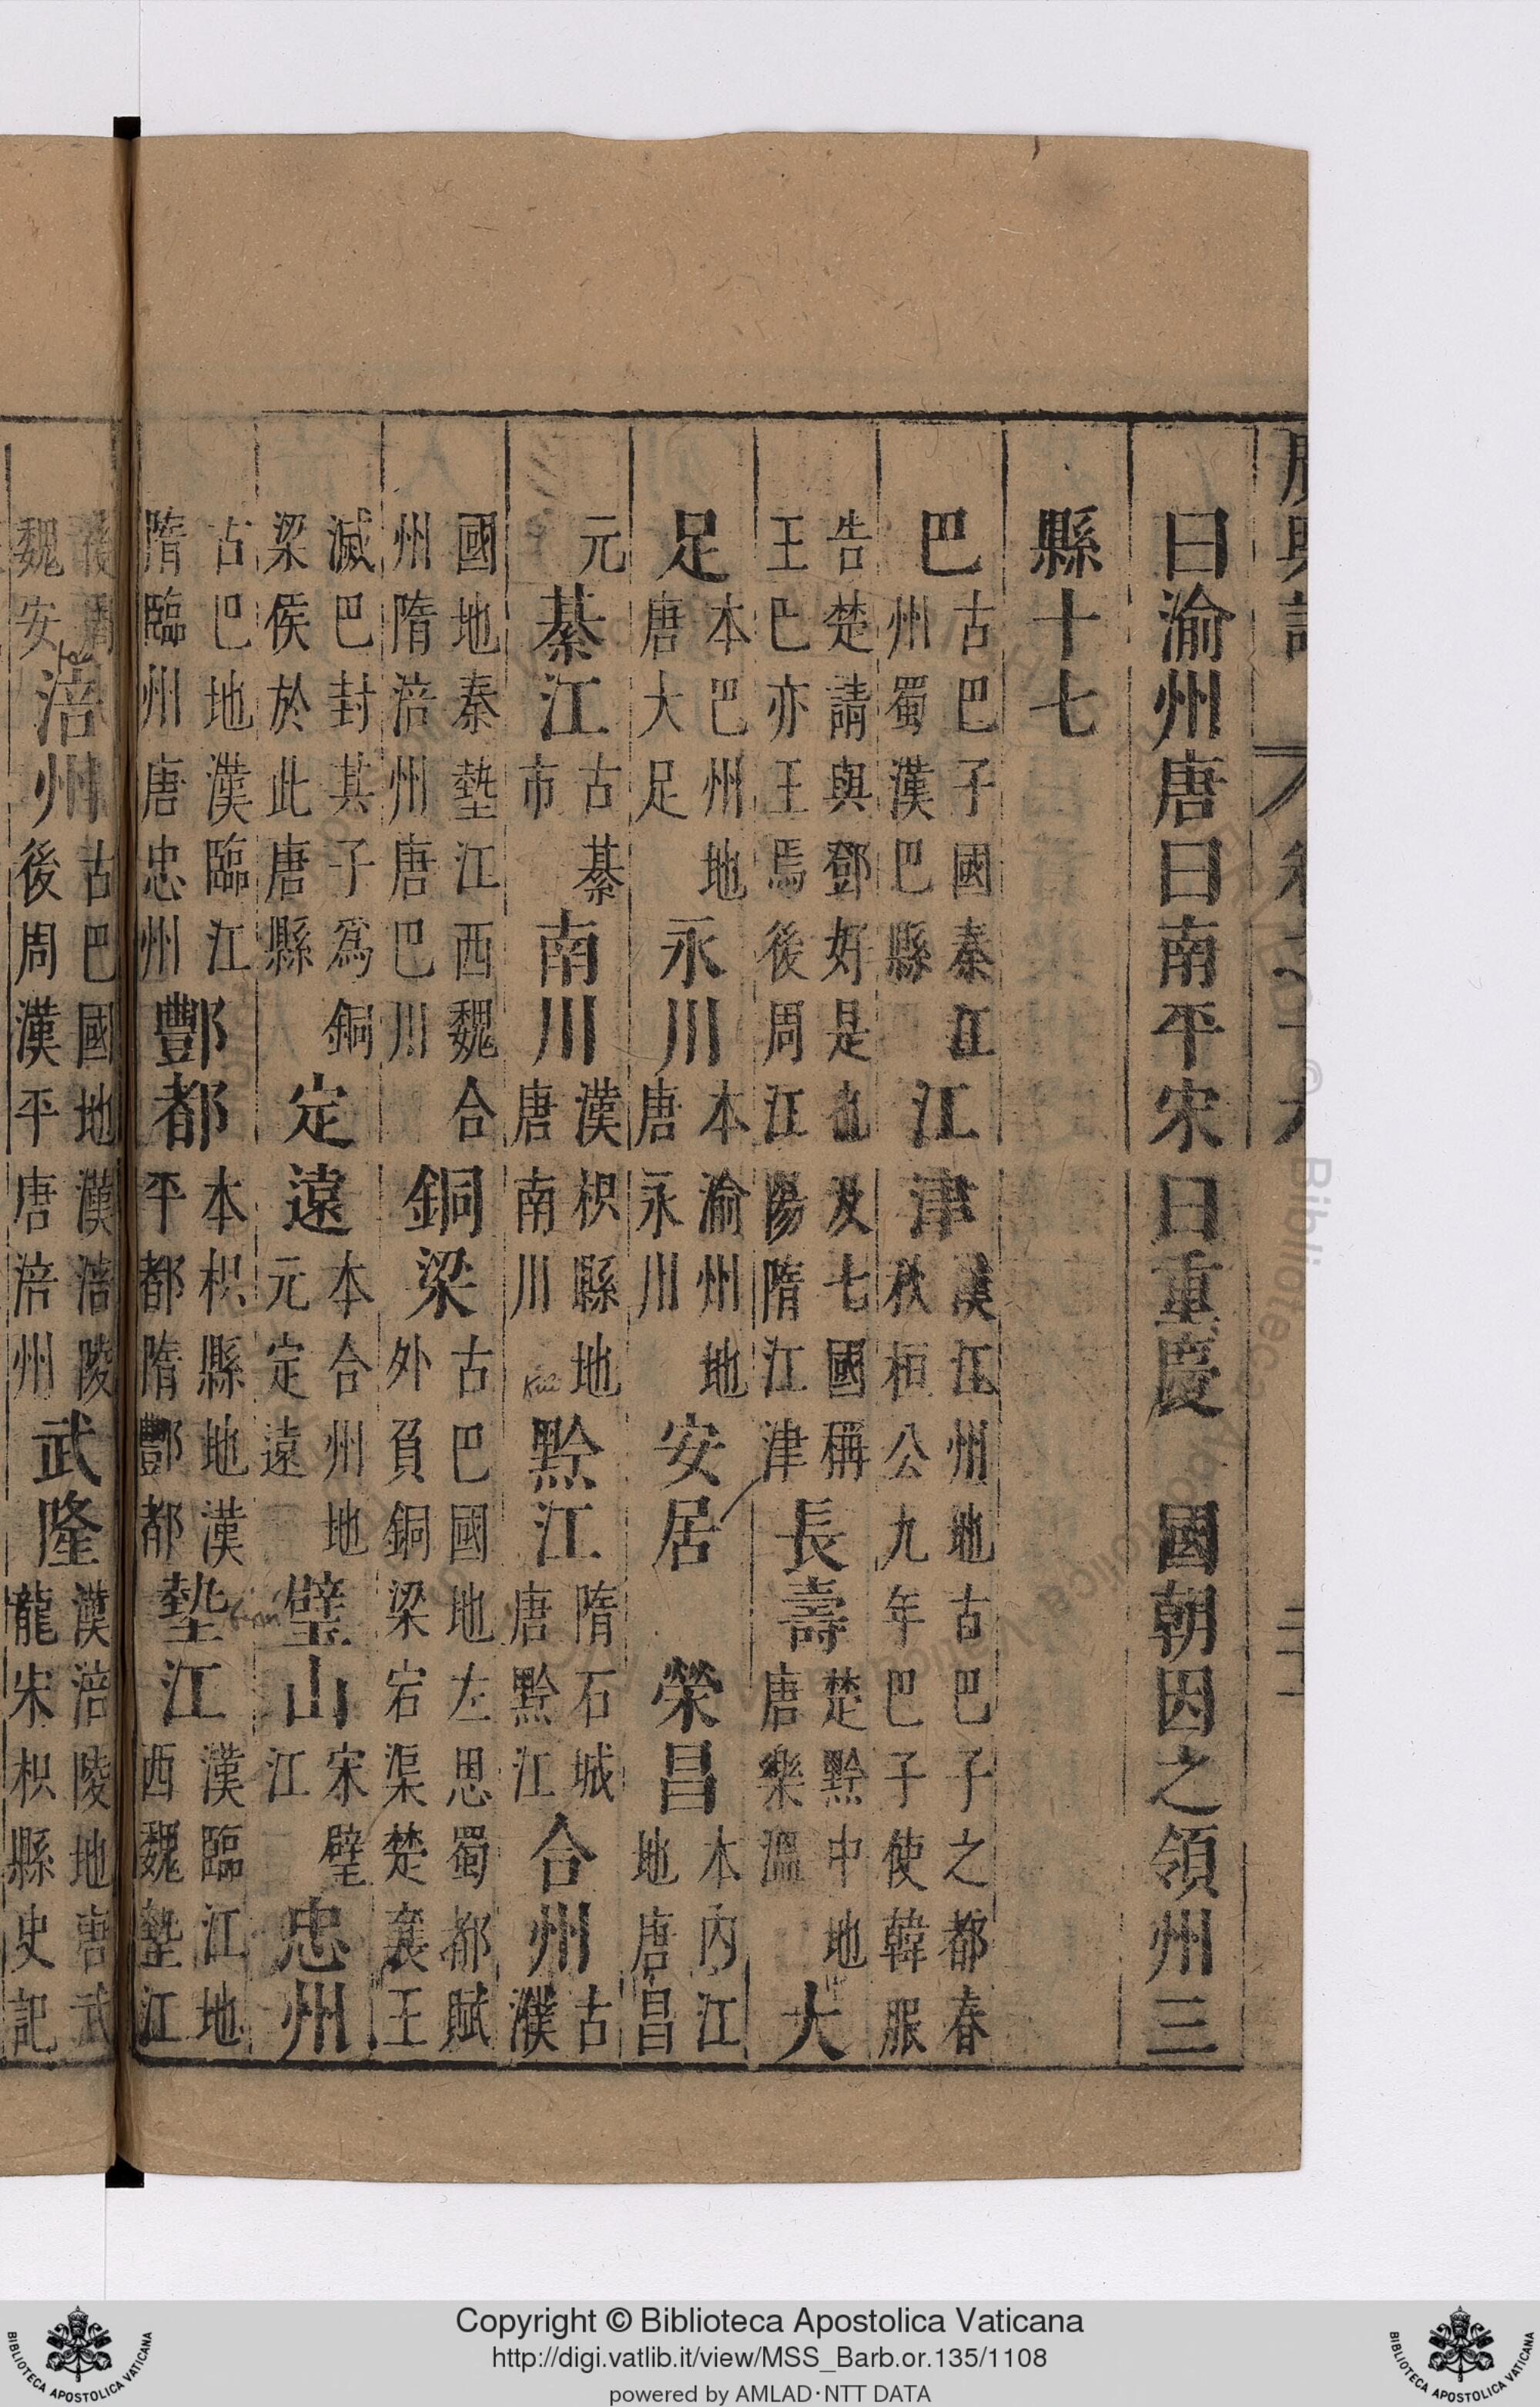 曰渝州唐曰南平宋曰重慶　國朝因之領州三
縣十七
巴古巴子國秦江州蜀漢巴縣江津漢江州地古巴子之都春秋桓公九年巴子使韓服
告楚請與鄧好是也及七國稱王巴亦王焉後周江陽隋江津長壽楚黔中地唐樂溫大
足本巴州地唐大足永川本渝州地唐永川安居榮昌本內江地唐昌
元綦江古綦市南川漢枳縣地唐南川黔江隋石城唐黔江合州古濮
國地秦墊江西魏合州隋涪州唐巴川銅梁古巴國地左思蜀都賦外負銅梁宕渠楚襄王
滅巴封其子爲銅梁侯於此唐縣定遠本合州地元定遠璧山宋璧江忠州
古巴地漢臨江隋臨州唐忠州酆都本枳縣地漢平都隋酆都墊江漢臨江地西魏墊江
後周魏安涪州古巴國地漢涪陵後周漢平唐涪州武隆漢涪陵地唐武龍宋枳縣史記
Copyright © Biblioteca Apostolica Vaticana
http://digi.vatlib.it/view/MSS_Barb.or.135/1108
powered by AMLAD·NTT DATA
BIBLIOTECA APOSTOLICA VATICANA
BIBLIOTECA APOSTOLICA VATICANA